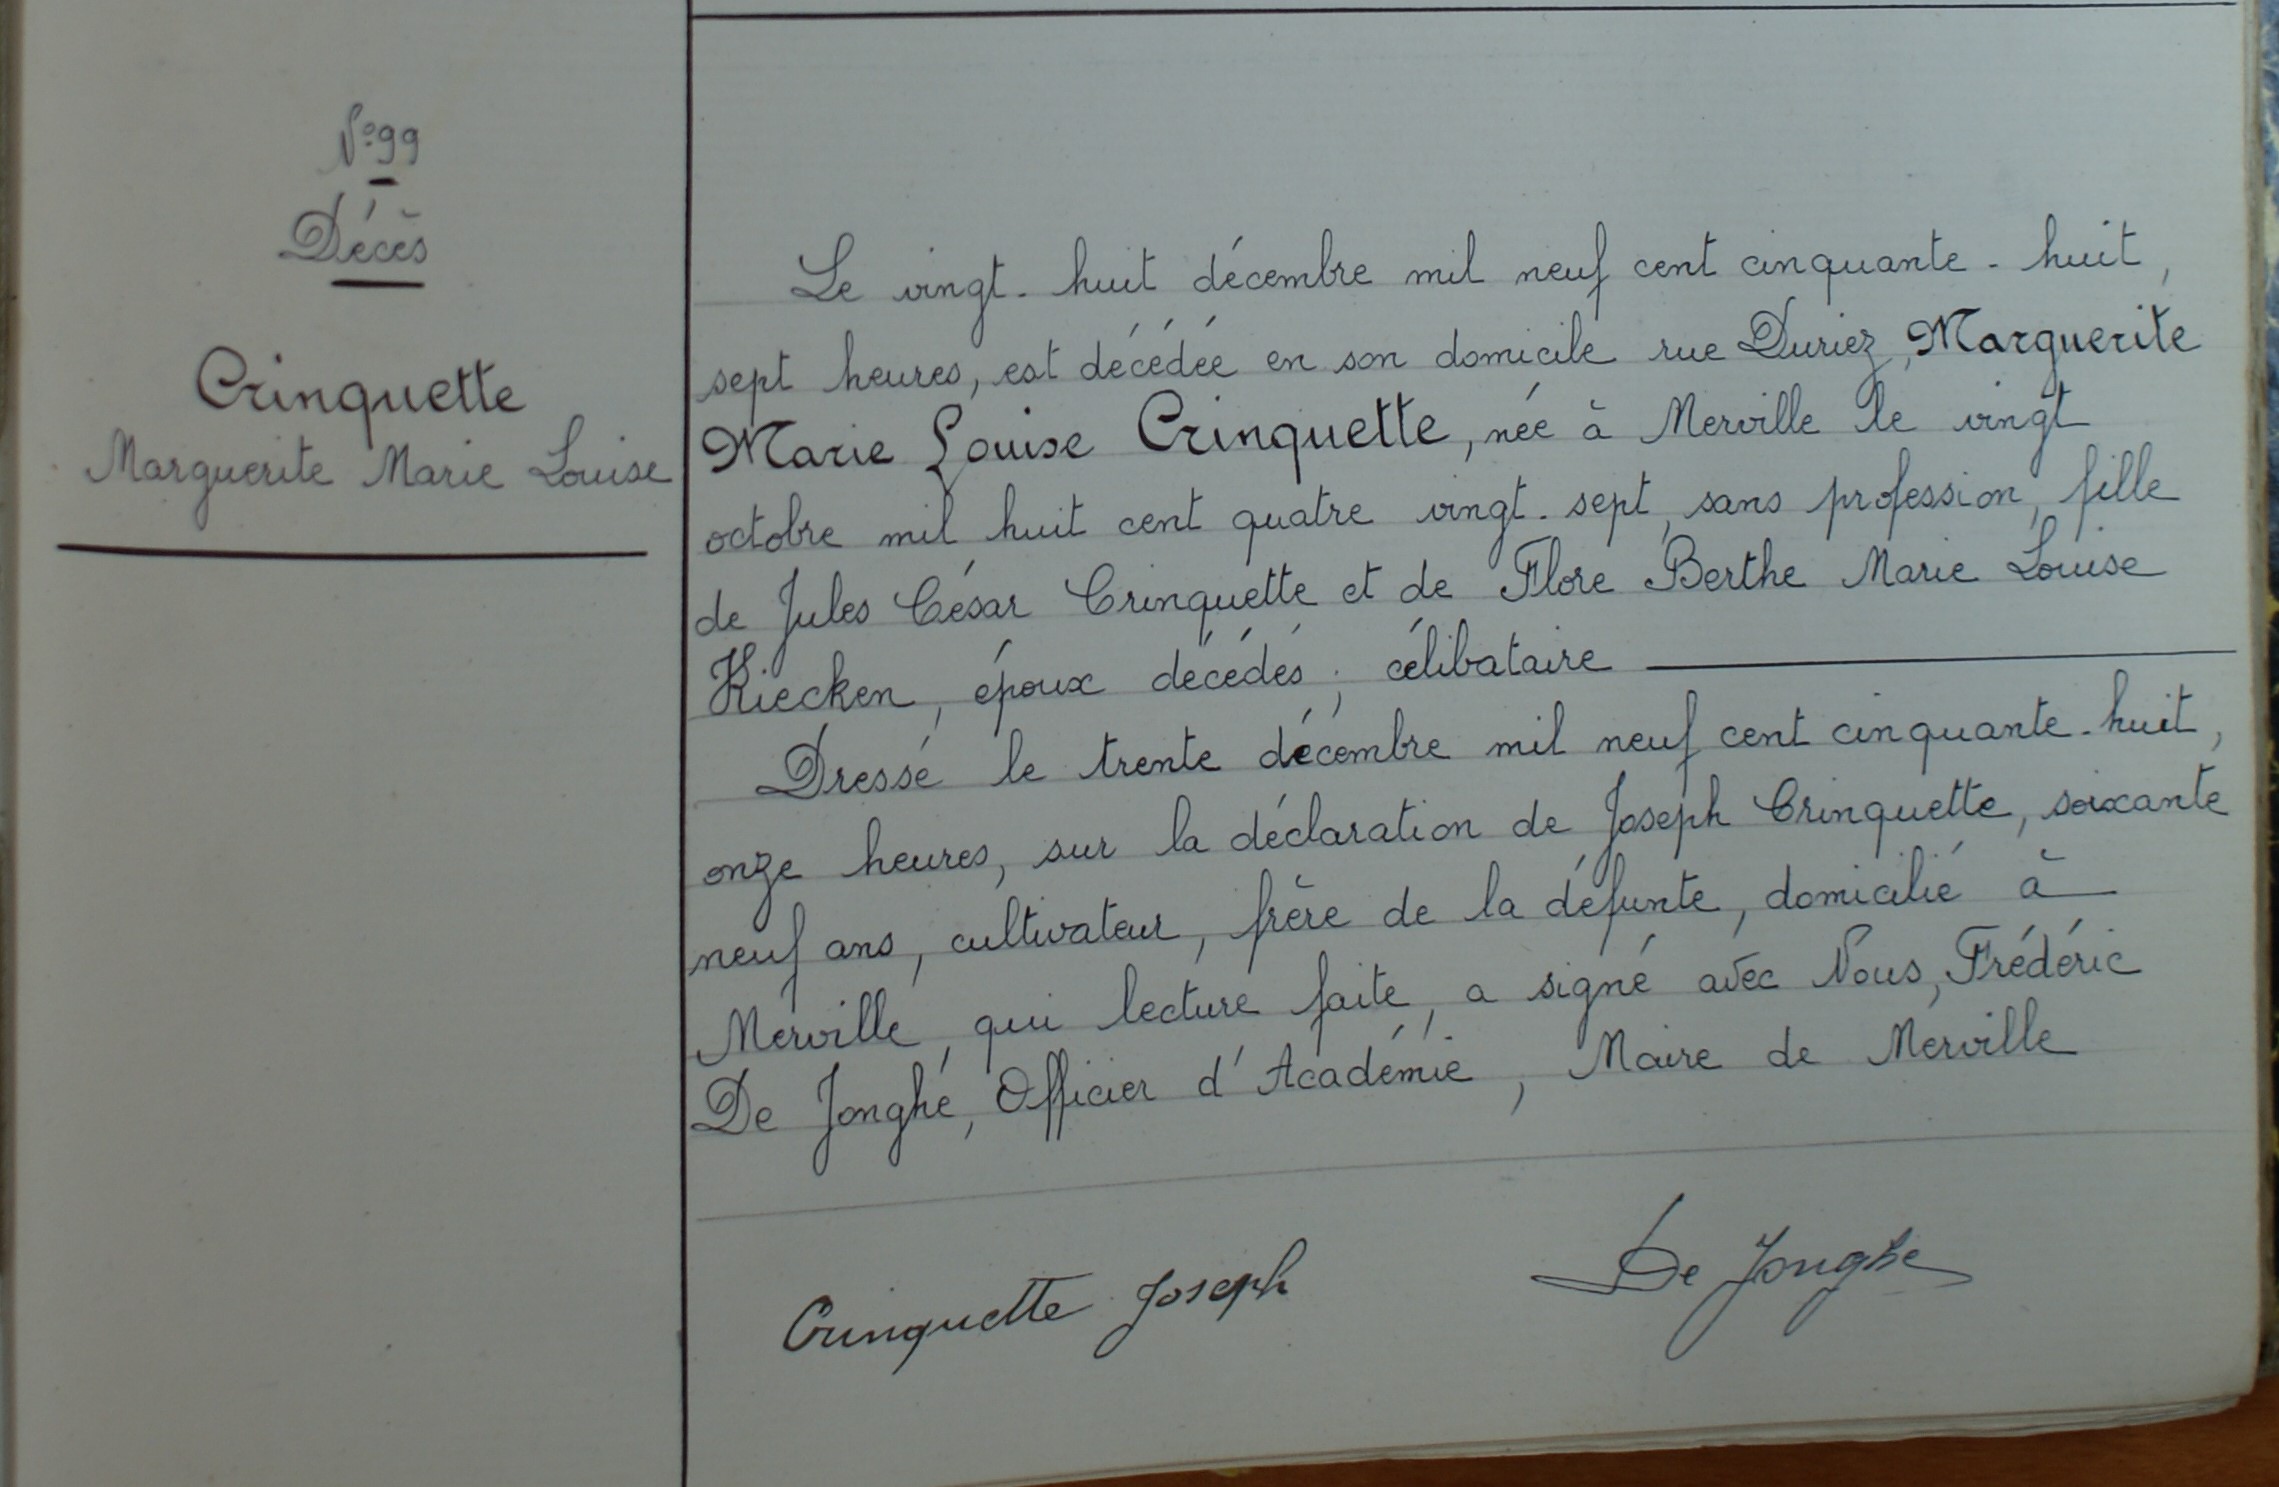 N° 99
Décès
Crinquette
Marguerite Marie Louise
Le vingt-huit décembre mil neuf cent cinquante-huit,
sept heures, est décédée en son domicile rue Duriez, Marguerite
Marie Louise Crinquette, née à Merville le vingt
octobre mil huit cent quatre vingt-sept, sans profession, fille
de Jules César Crinquette et de Flore Berthe Marie Louise
Kiecken, époux décédés ; célibataire
Dressé le trente décembre mil neuf cent cinquante-huit,
onze heures, sur la déclaration de Joseph Crinquette, soixante
neuf ans, cultivateur, frère de la défunte, domicilié à
Merville, qui lecture faite, a signé avec Nous, Frédéric
De Jonghe, Officier d'Académie, Maire de Merville
Crinquette Joseph
De Jonghe